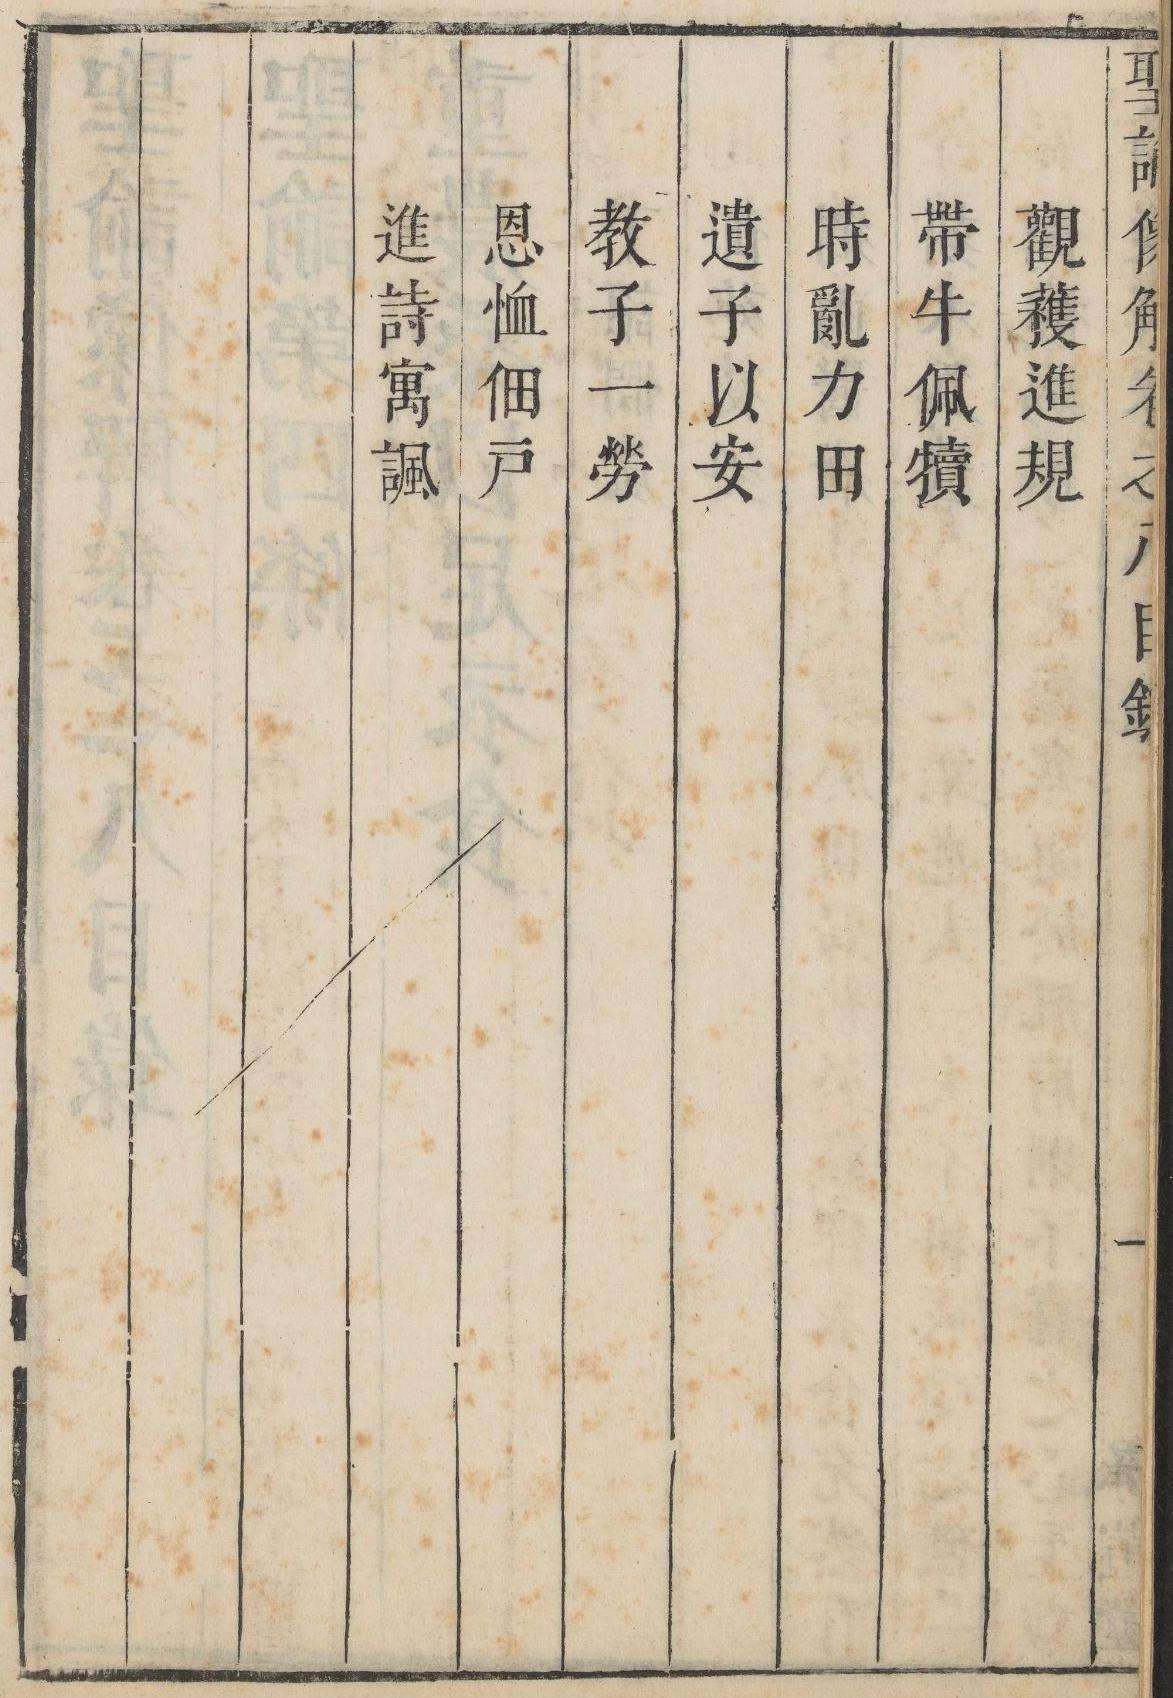 聖諭像解卷之八目錄
一
觀蕿進規
帶牛佩犢
時亂力田
遺子以安
教子一勞
恩恤佃戸
進詩寓諷